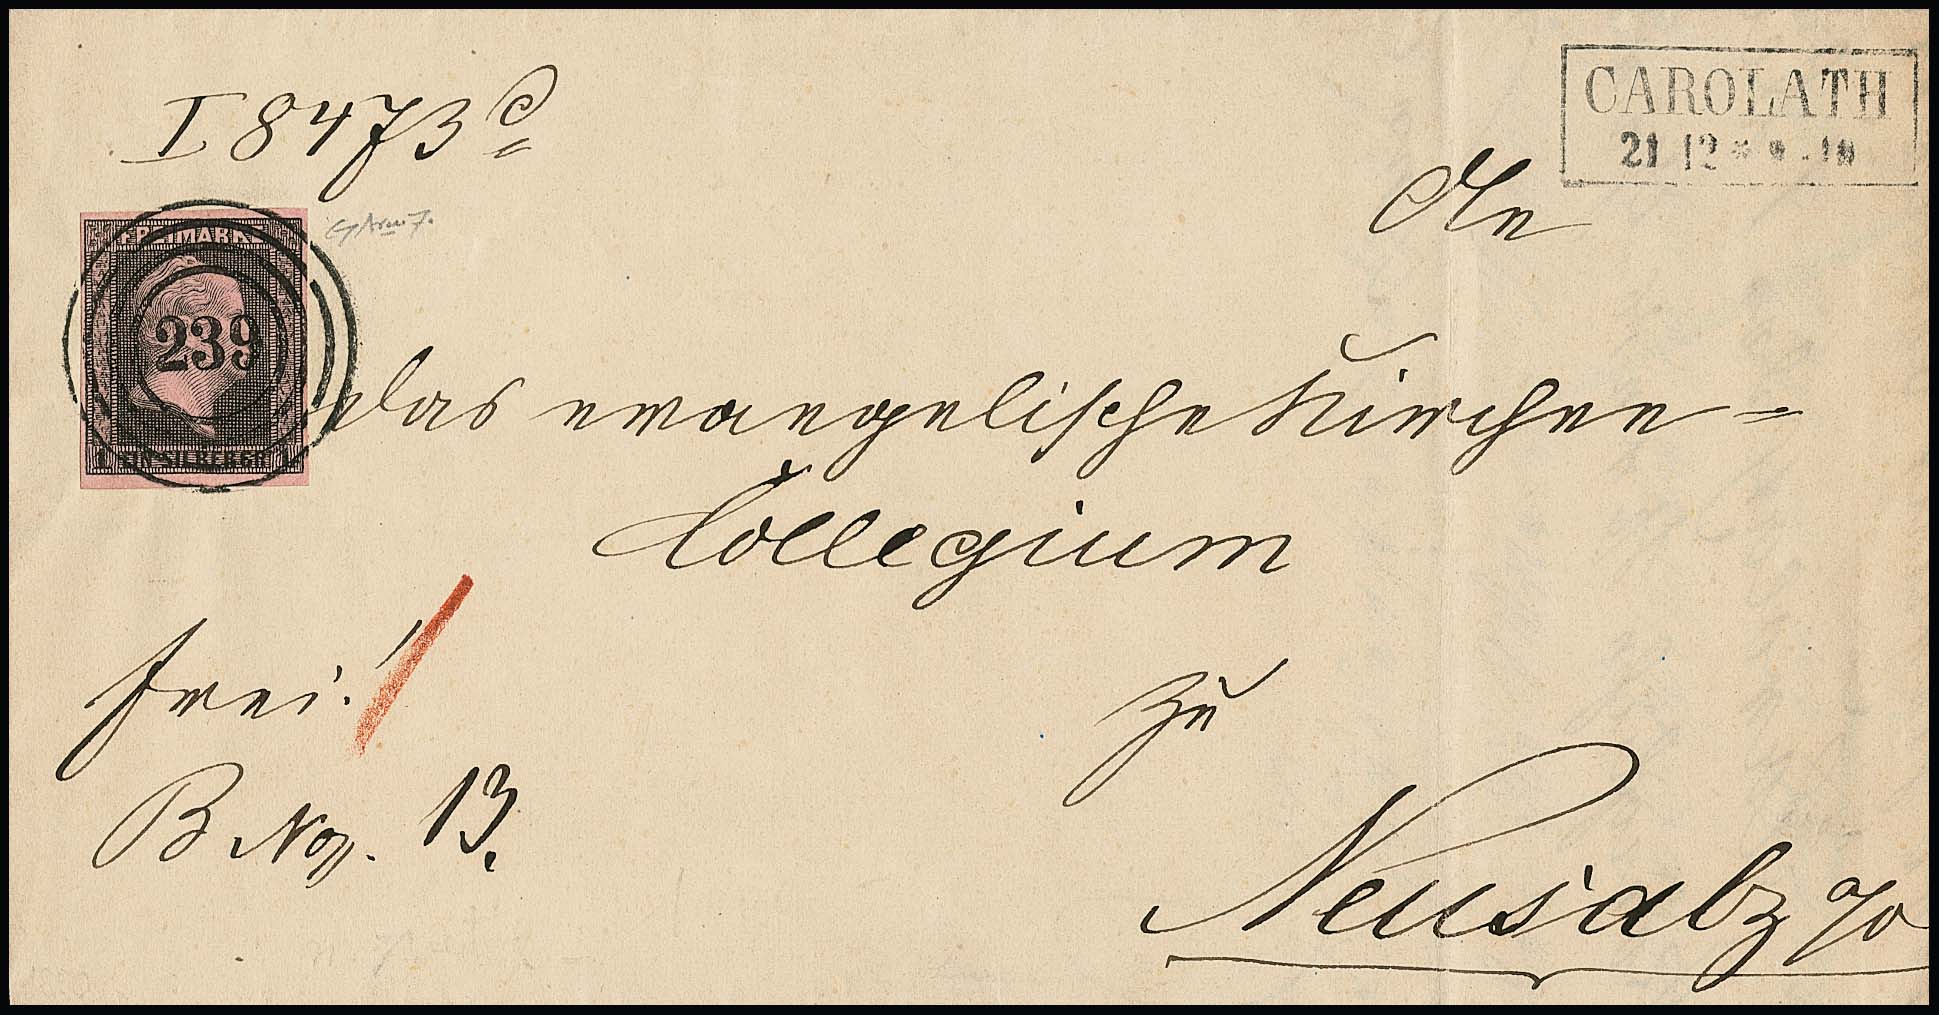 I 8473 c
CAROLATH
21 12 * 9 - 10
An
FREIMARKE
239
1 EIN SILBERGR 1
das evangelische Kirchen=
Collegium
frei!
zu
B No. 13.
Neusalz a/o